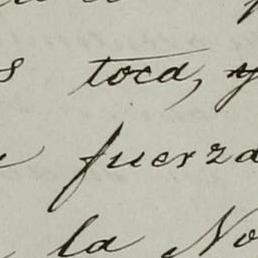 toca, y
fuerza
la No